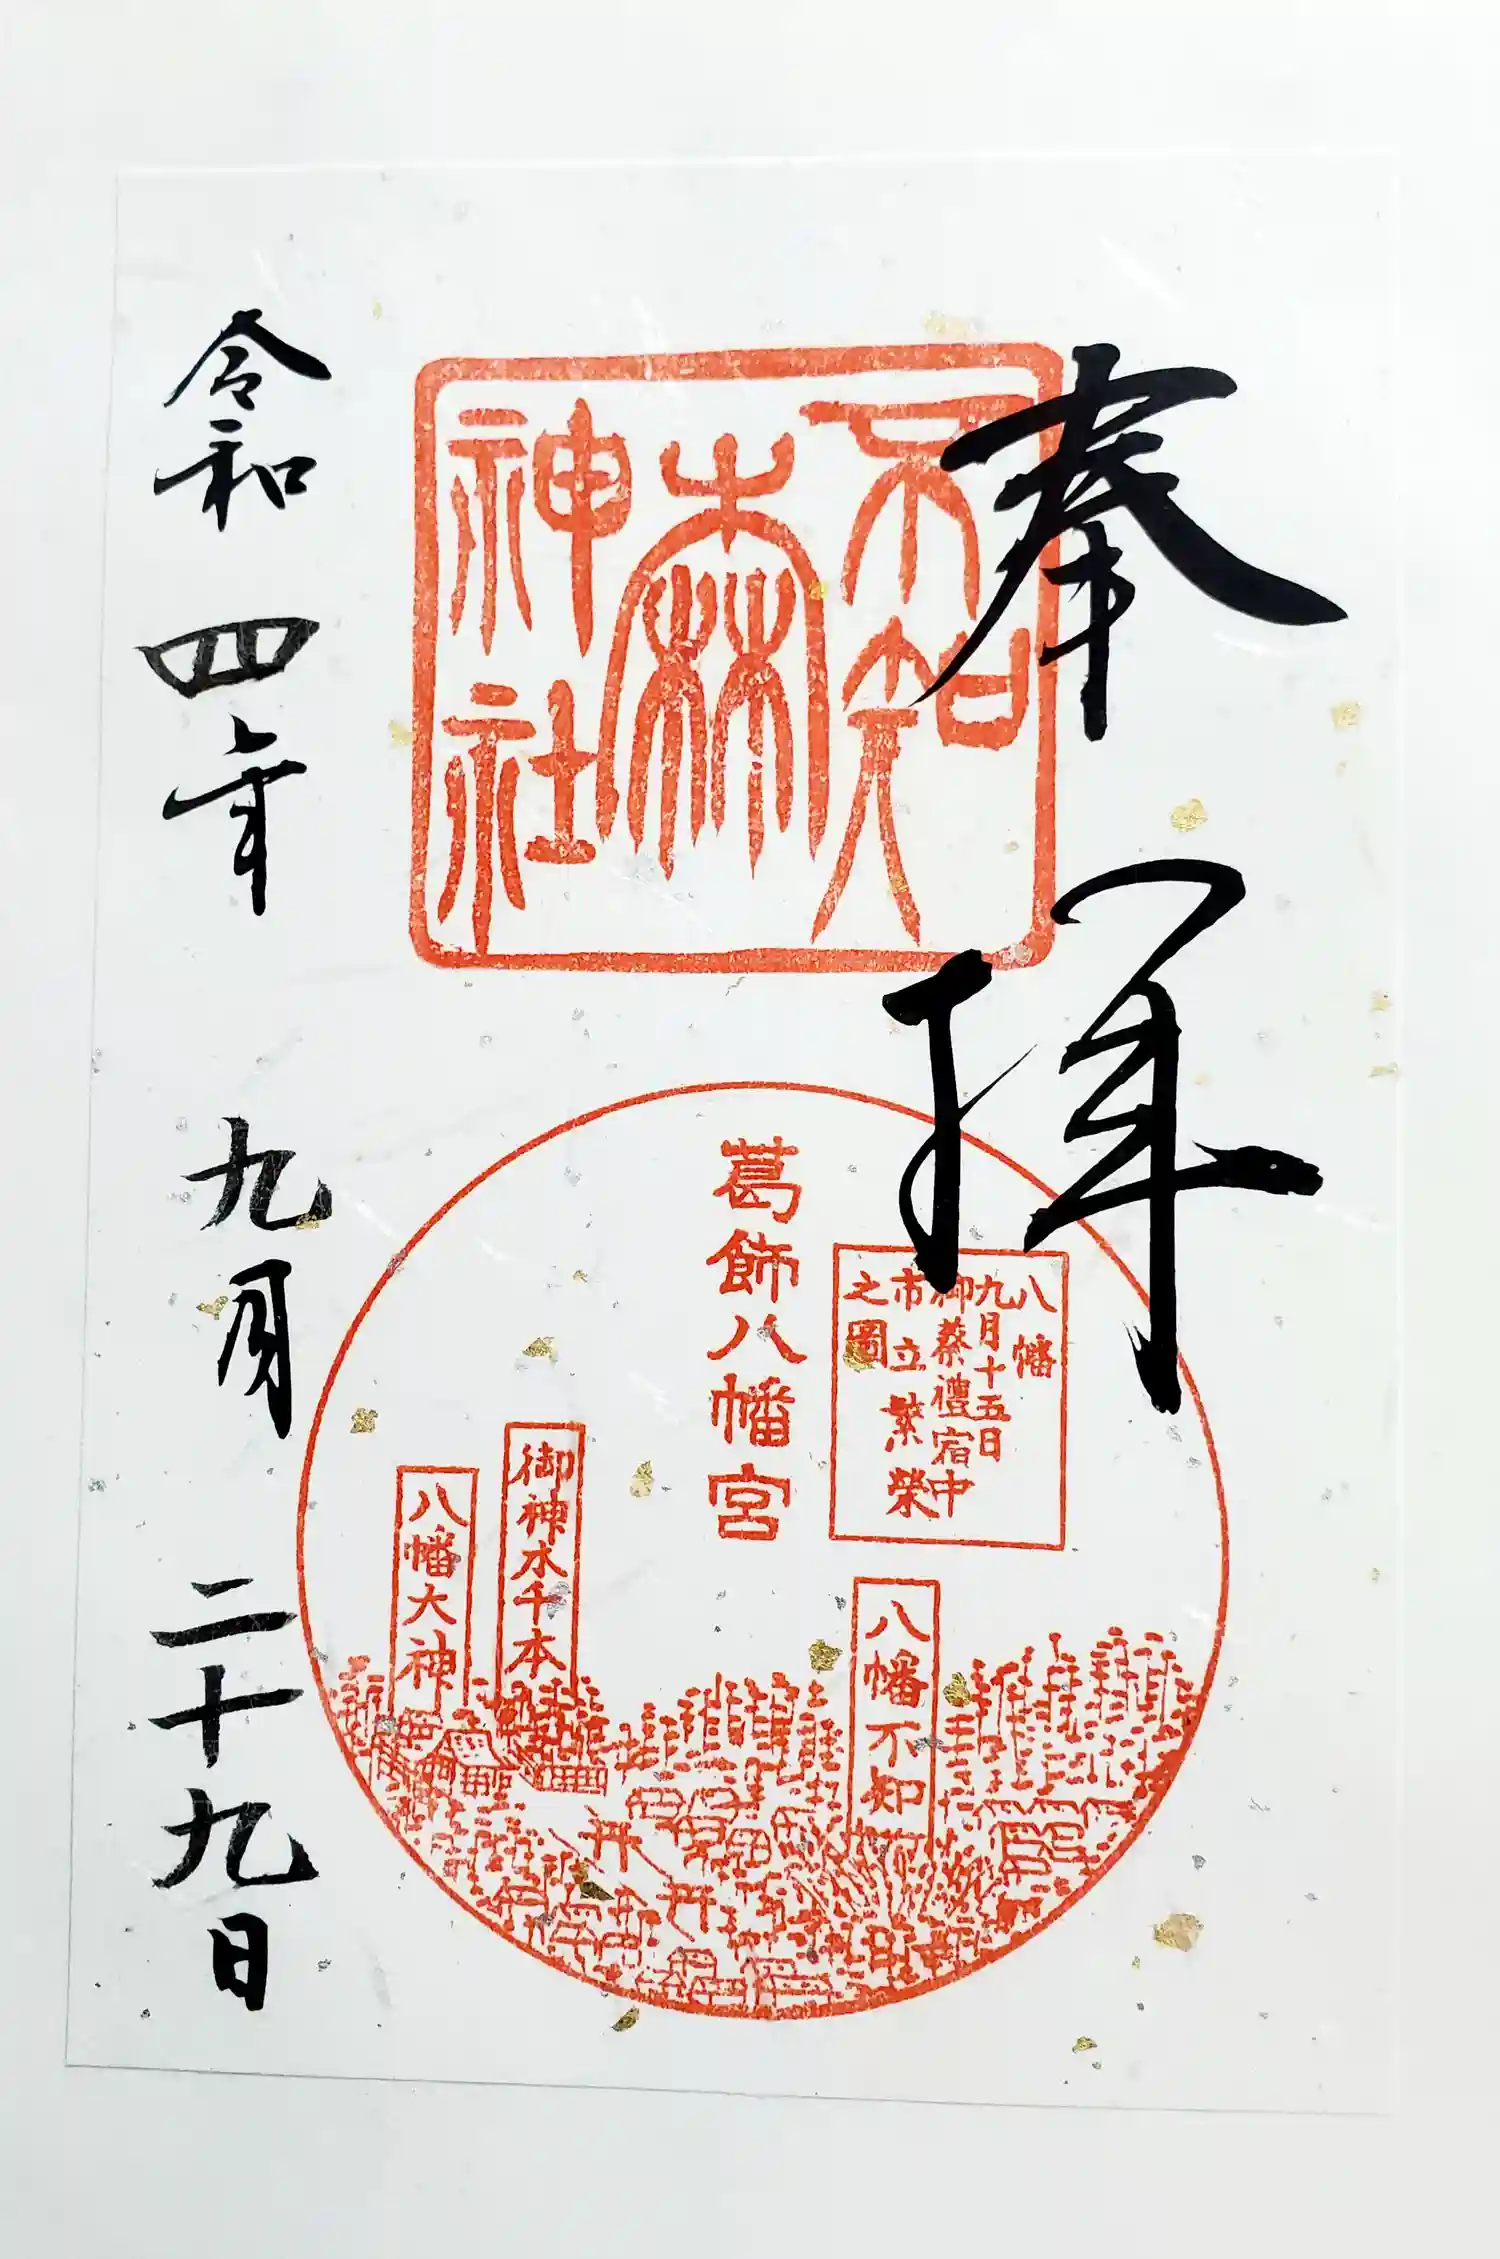 奉拝
不知
森
神社
葛飾八幡宮
八幡
九月十五日
御祭禮宿中
市立繁榮
之圖
八幡不知
御神木千本
八幡大神
令和四年九月二十九日